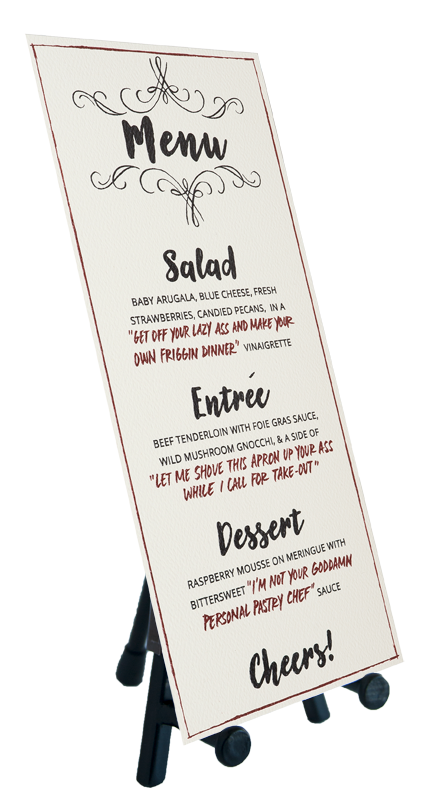 Menu
Salad
BABY ARUGALA, BLUE CHEESE, FRESH
STRAWBERRIES, CANDIED PECANS, IN A
"GET OFF YOUR LAZY ASS AND MAKE YOUR
OWN FRIGGIN DINNER" VINAIGRETTE
Entrée
BEEF TENDERLOIN WITH FOIE GRAS SAUCE,
WILD MUSHROOM GNOCCHI, & A SIDE OF
"LET ME SHOVE THIS APRON UP YOUR ASS
WHILE I CALL FOR TAKE-OUT"
Dessert
RASPBERRY MOUSSE ON MERINGUE WITH
BITTERSWEET "I'M NOT YOUR GODDAMN
PERSONAL PASTRY CHEF" SAUCE
Cheers!